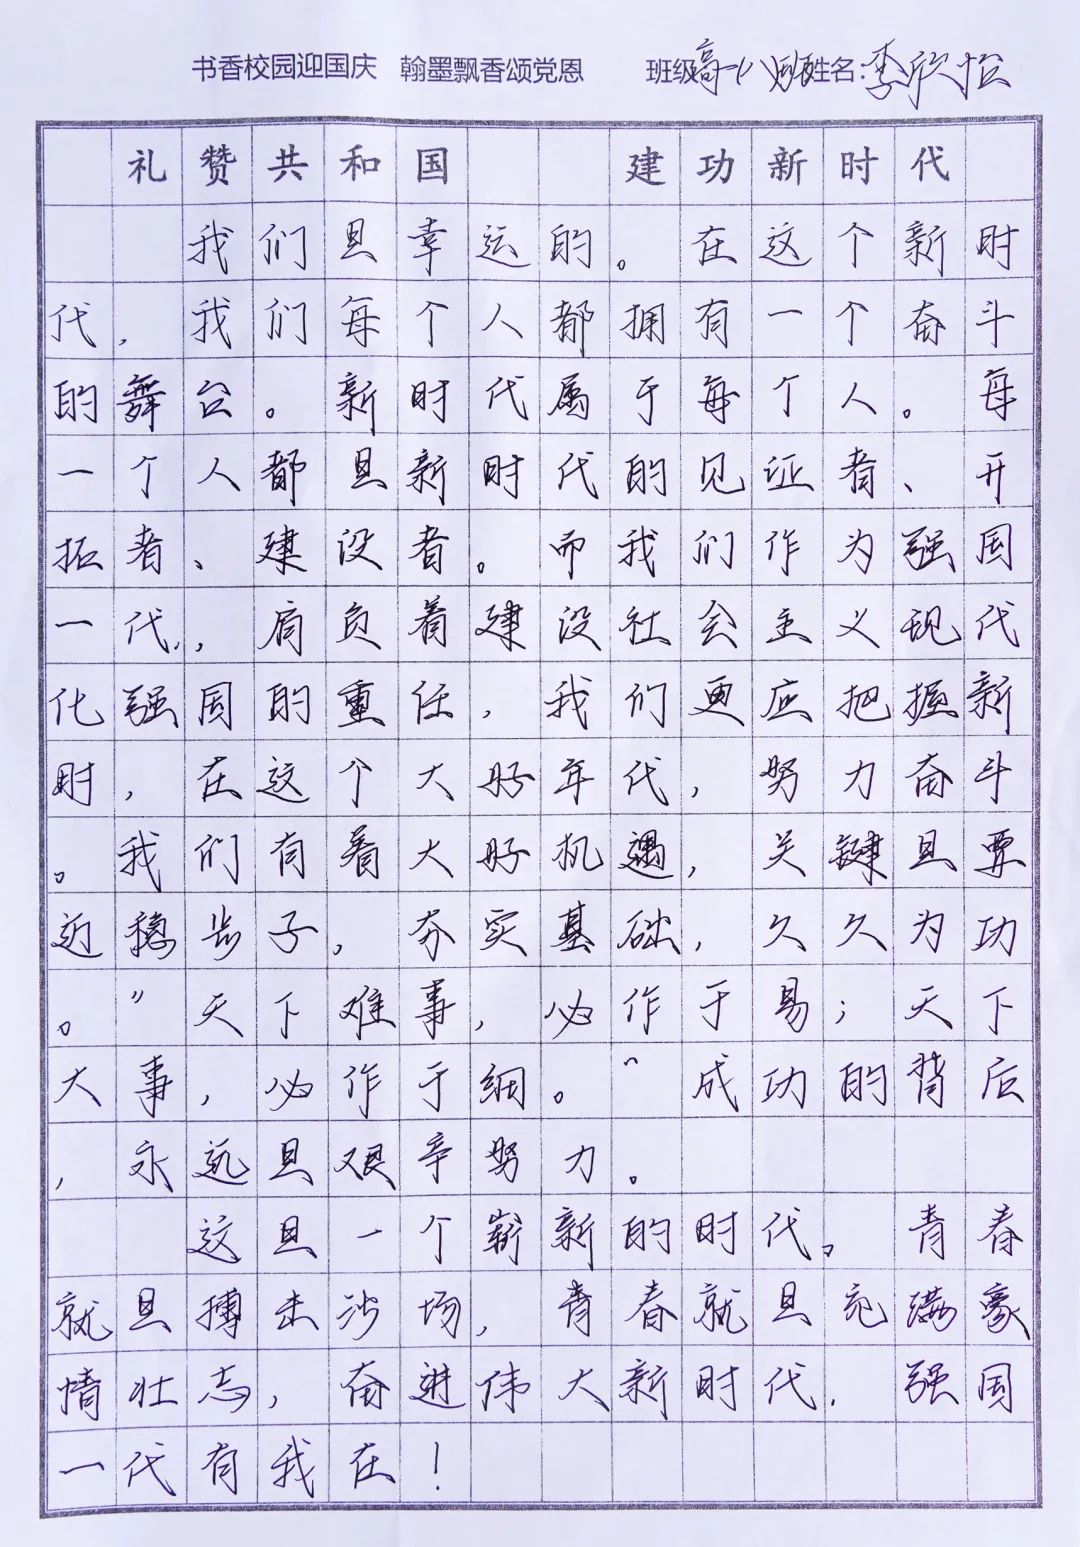 书香校园迎国庆 翰墨飘香颂党恩 班级高一八班姓名:李欣怡
礼赞共和国 建功新时代
我们是幸运的。在这个新时
代,我们每个人都拥有一个奋斗
的舞台。新时代属于每个人。每
一个人都是新时代的见证者、开
拓者、建设者。而我们作为强国
一代,,肩负着建设社会主义现代
化强国的重任,我们更应把握新
时,在这个大好年代,努力奋斗
。我们有着大好机遇,关键是要
迈稳步子,夯实基础,久久为功
。"天下难事,必作于易;天下
大事,必作于细。"成功的背后
,永远是艰辛努力。
这是一个崭新的时代。青春
就是搏击沙场,青春就是充满豪
情壮志,奋进伟大新时代.强国
一代有我在!